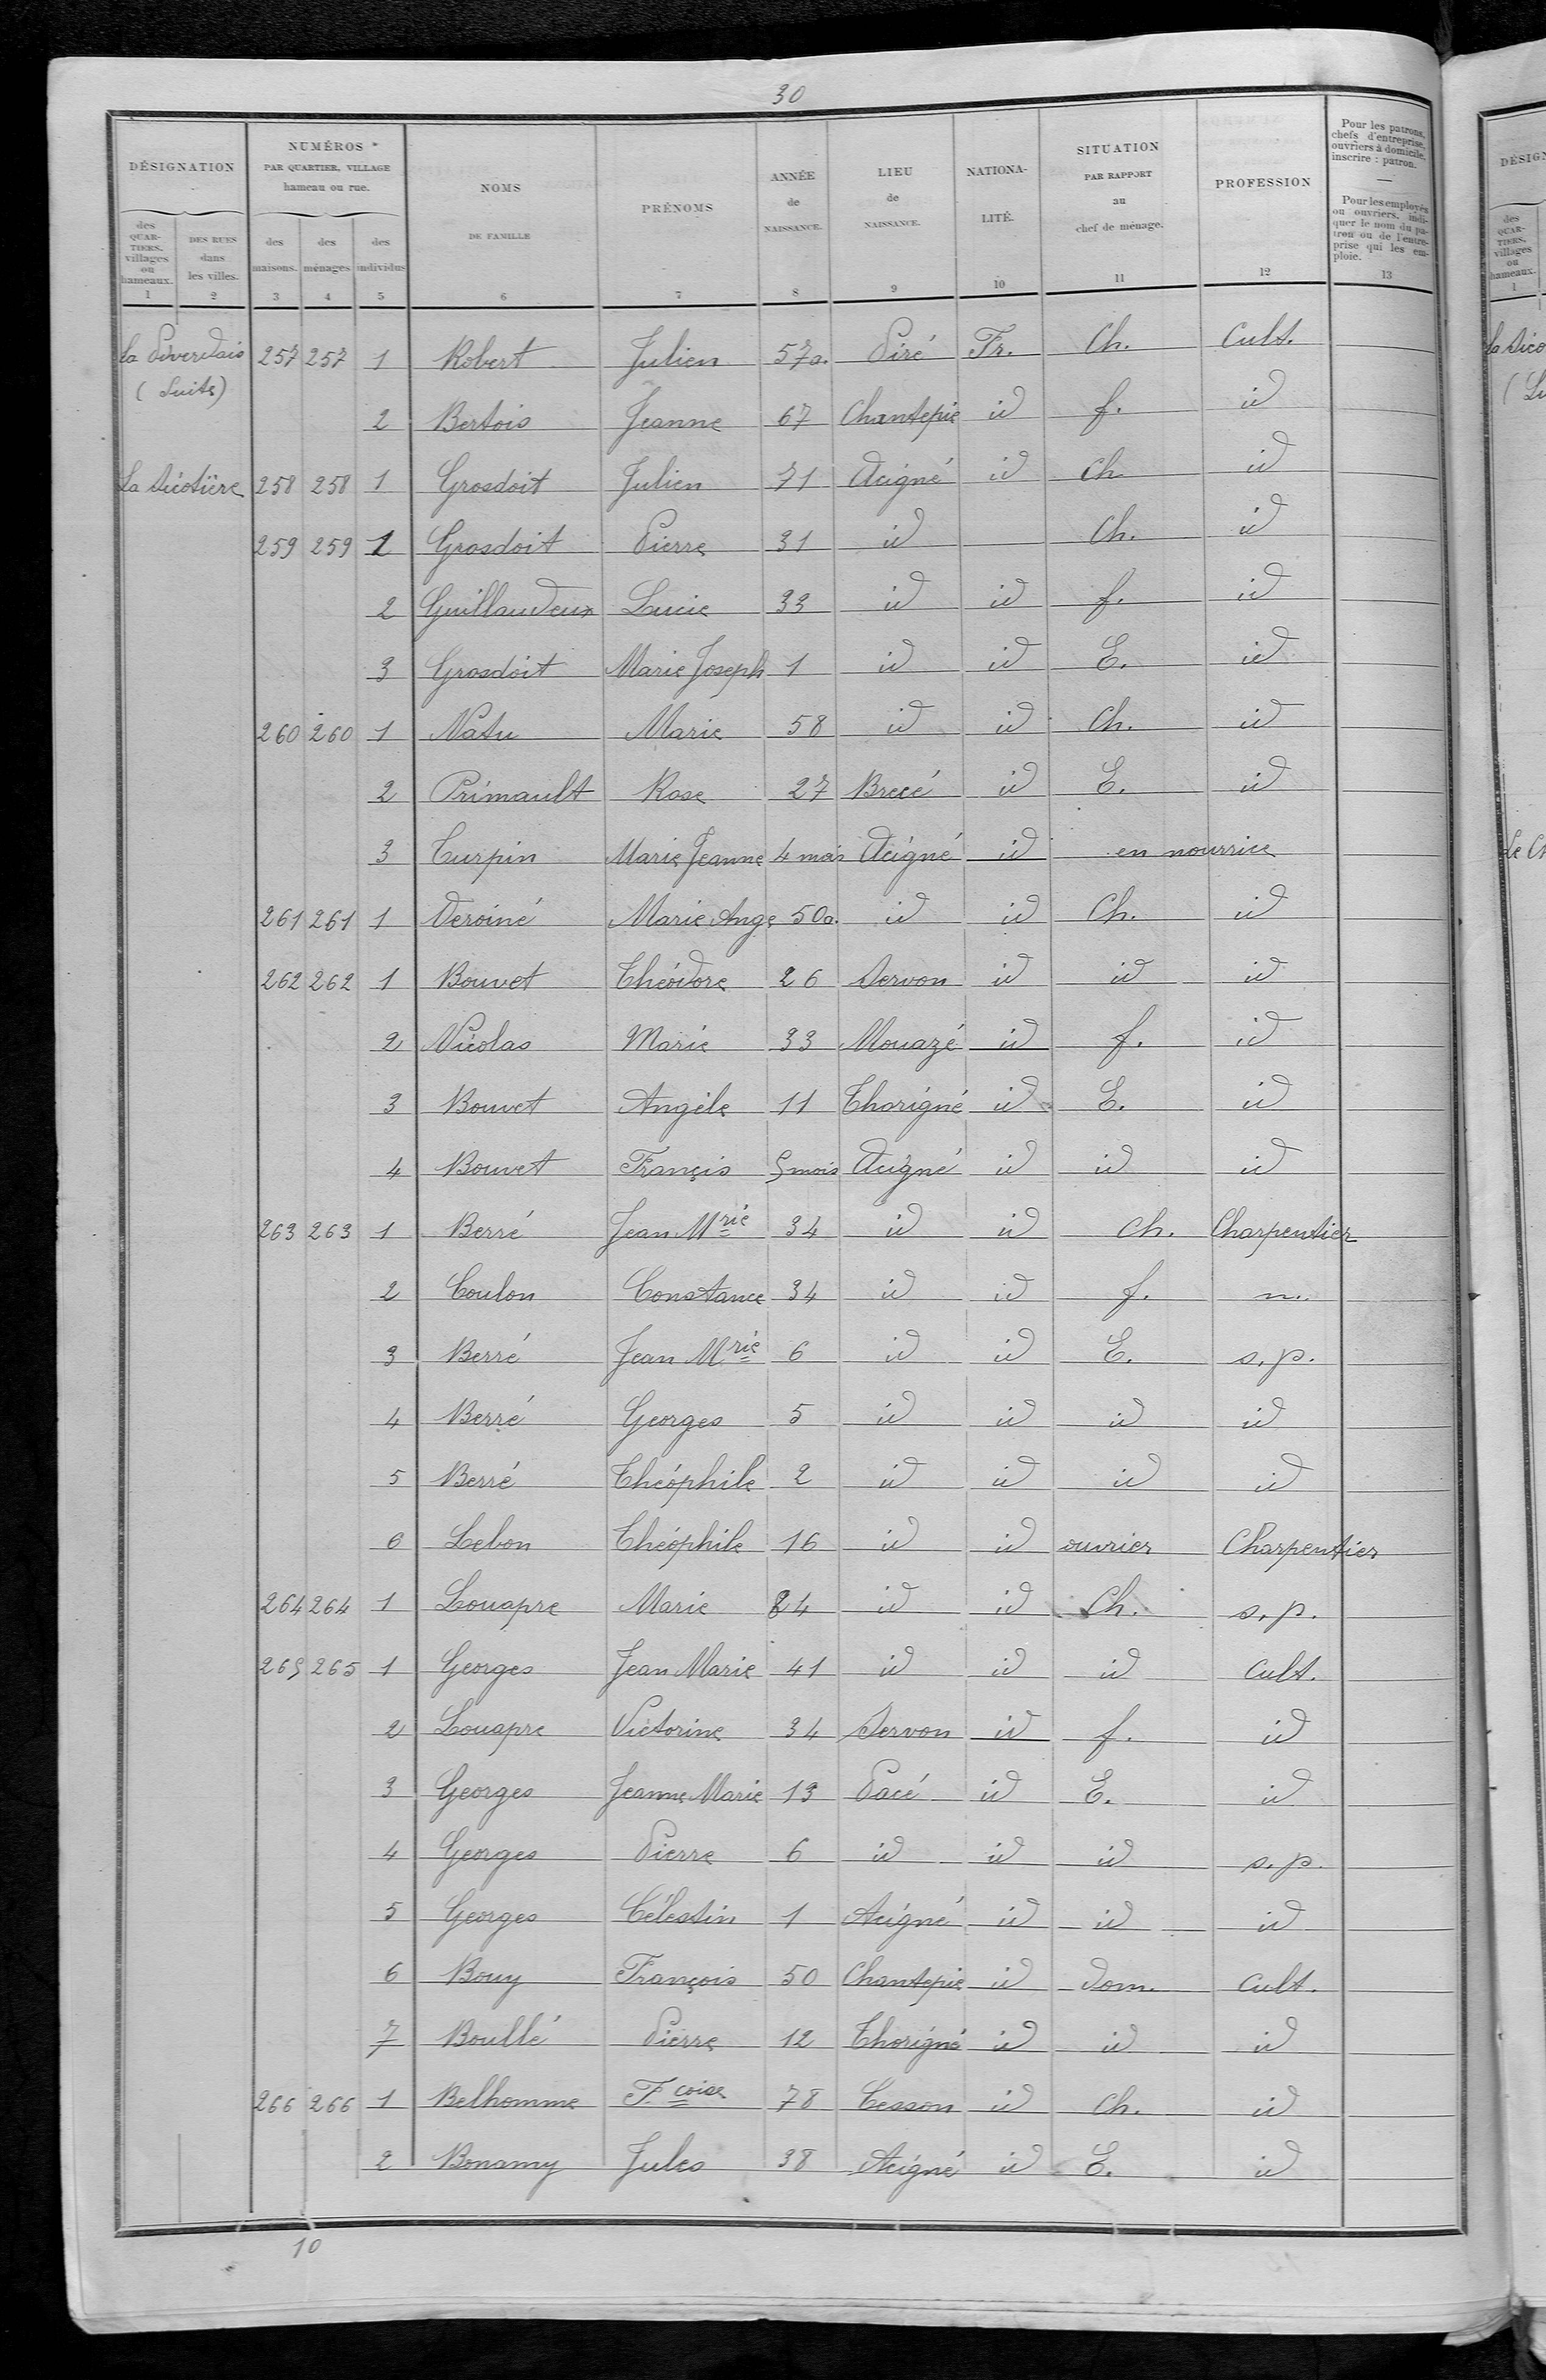 30
DÉSIGNATION
NUMÉROS
PAR QUARTIER, VILLAGE
hameau ou rue.
NOMS
DE FAMILLE
PRÉNOMS
ANNÉE
de
NAISSANCE.
LIEU
de
NAISSANCE.
NATIONA-
LITÉ.
SITUATION
PAR RAPPORT
au
chef de ménage.
PROFESSION
Pour les patrons,
chefs d'entreprise,
ouvriers à domicile,
inscrire : patron.
—
Pour les employés
ou ouvriers, indi-
quer le nom du pa-
tron ou de l'entre-
prise qui les em-
ploie.
des
QUAR-
TIERS,
villages
ou
hameaux.
DES RUES
dans
les villes.
des
maisons.
des
ménages
des
individus
1 2 3 4 5 6 7 8 9 10 11 12 13
257 257 1 Robert Julien 57a. Piré Fr. Ch. Cult.
(Suite)
2 Bertois Jeanne 67 Chantepie id f. id
La Dicotière 258 258 1 Grosdoit Julien 71 Acigné id Ch id
259 259 1 Grosdoit Pierre 31 id Ch. id
2 Guillaudeux Lucie 33 id id f. id
3 Grosdoit Marie Joseph 1 id id E. id
260 260 1 Natu Marie 58 id id Ch. id
2 Primault Rose 27 Brecé id E. id
3 Turpin Marie Jeanne 4 mois Acigné id en nourrice
261 261 1 Deroiné Marie Ange 50a. id id Ch. id
262 262 1 Bouvet Théodore 26 Servon id id id
2 Nicolas Marie 33 Mouazé id f. id
3 Bouvet Angèle 11 Thorigné id E. id
4 Bouvet Françis 5 mois Acigné id id id
263 263 1 Berré Jean Mrie 34 id id Ch. Charpentier
2 Coulon Constance 34 id id f. n.
3 Berré Jean Mrie 6 id id E. s.p.
4 Berré Georges 5 id id id id
5 Berré Théophile 2 id id id id
6 Lebon Théophile 16 id id ouvrier Charpentier
264 264 1 Louapre Marie 84 id id Ch. s.p.
265 265 1 Georges Jean Marie 41 id id id Cult.
2 Louapre Victorine 34 Servon id f. id
3 Georges Jeanne Marie 13 Pacé id E. id
4 Georges Pierre 6 id id id s.p.
5 Georges Célestin 1 Acigné id id id
6 Bouy François 50 Chantepie id dom. Cult.
7 Boullé Pierre 12 Thorigné id id id
266 266 1 Belhomme F.coise 78 Cesson id Ch. id
2 Bonamy Jules 38 Acigné id E. id
10